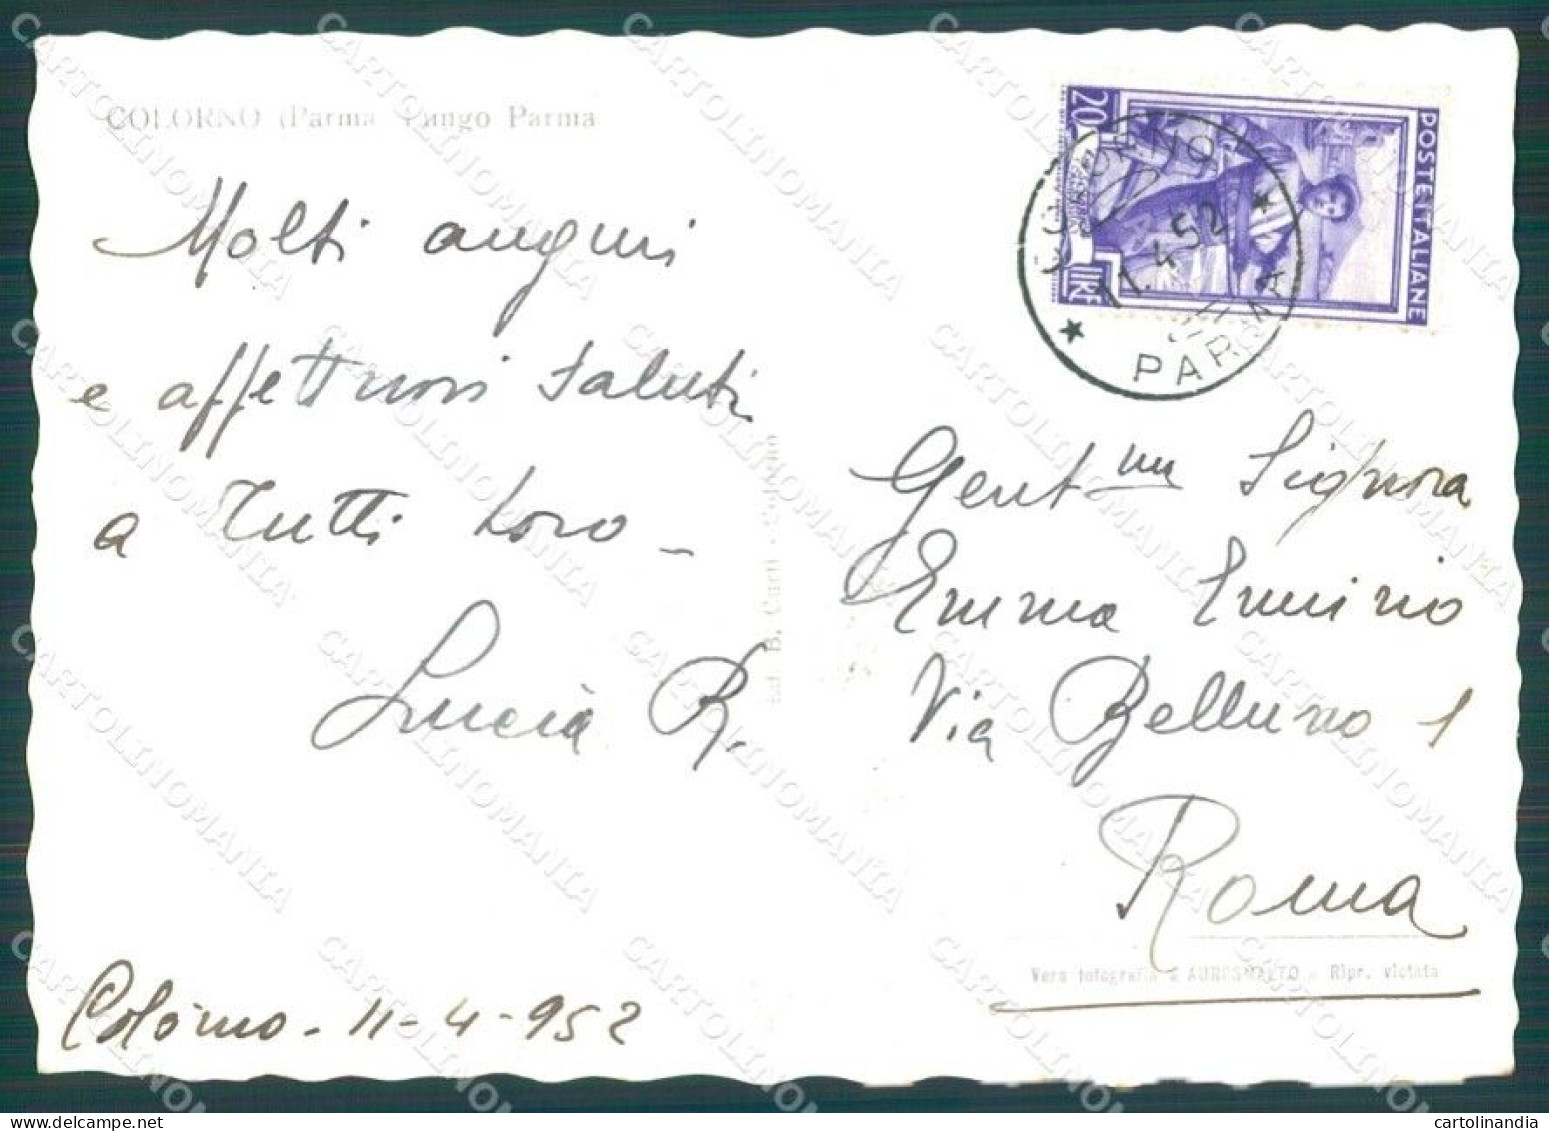 COLORNO (Parma) Lungo Parma
Molti auguri
e affettuosi saluti
a Tutti Loro -
Lucia R.
Colorno - 11 - 4 - 952
Ed. B. Curti - Colorno
20
LIRE
POSTE ITALIANE
COLORNO
11.4.52
PARMA
Gent.ma Signora
Emma
Via Belluno 1
Roma
Vera fotografia AUROSMALTO - Ripr. vietata
CARTOLINOMANIA
cartolinandia